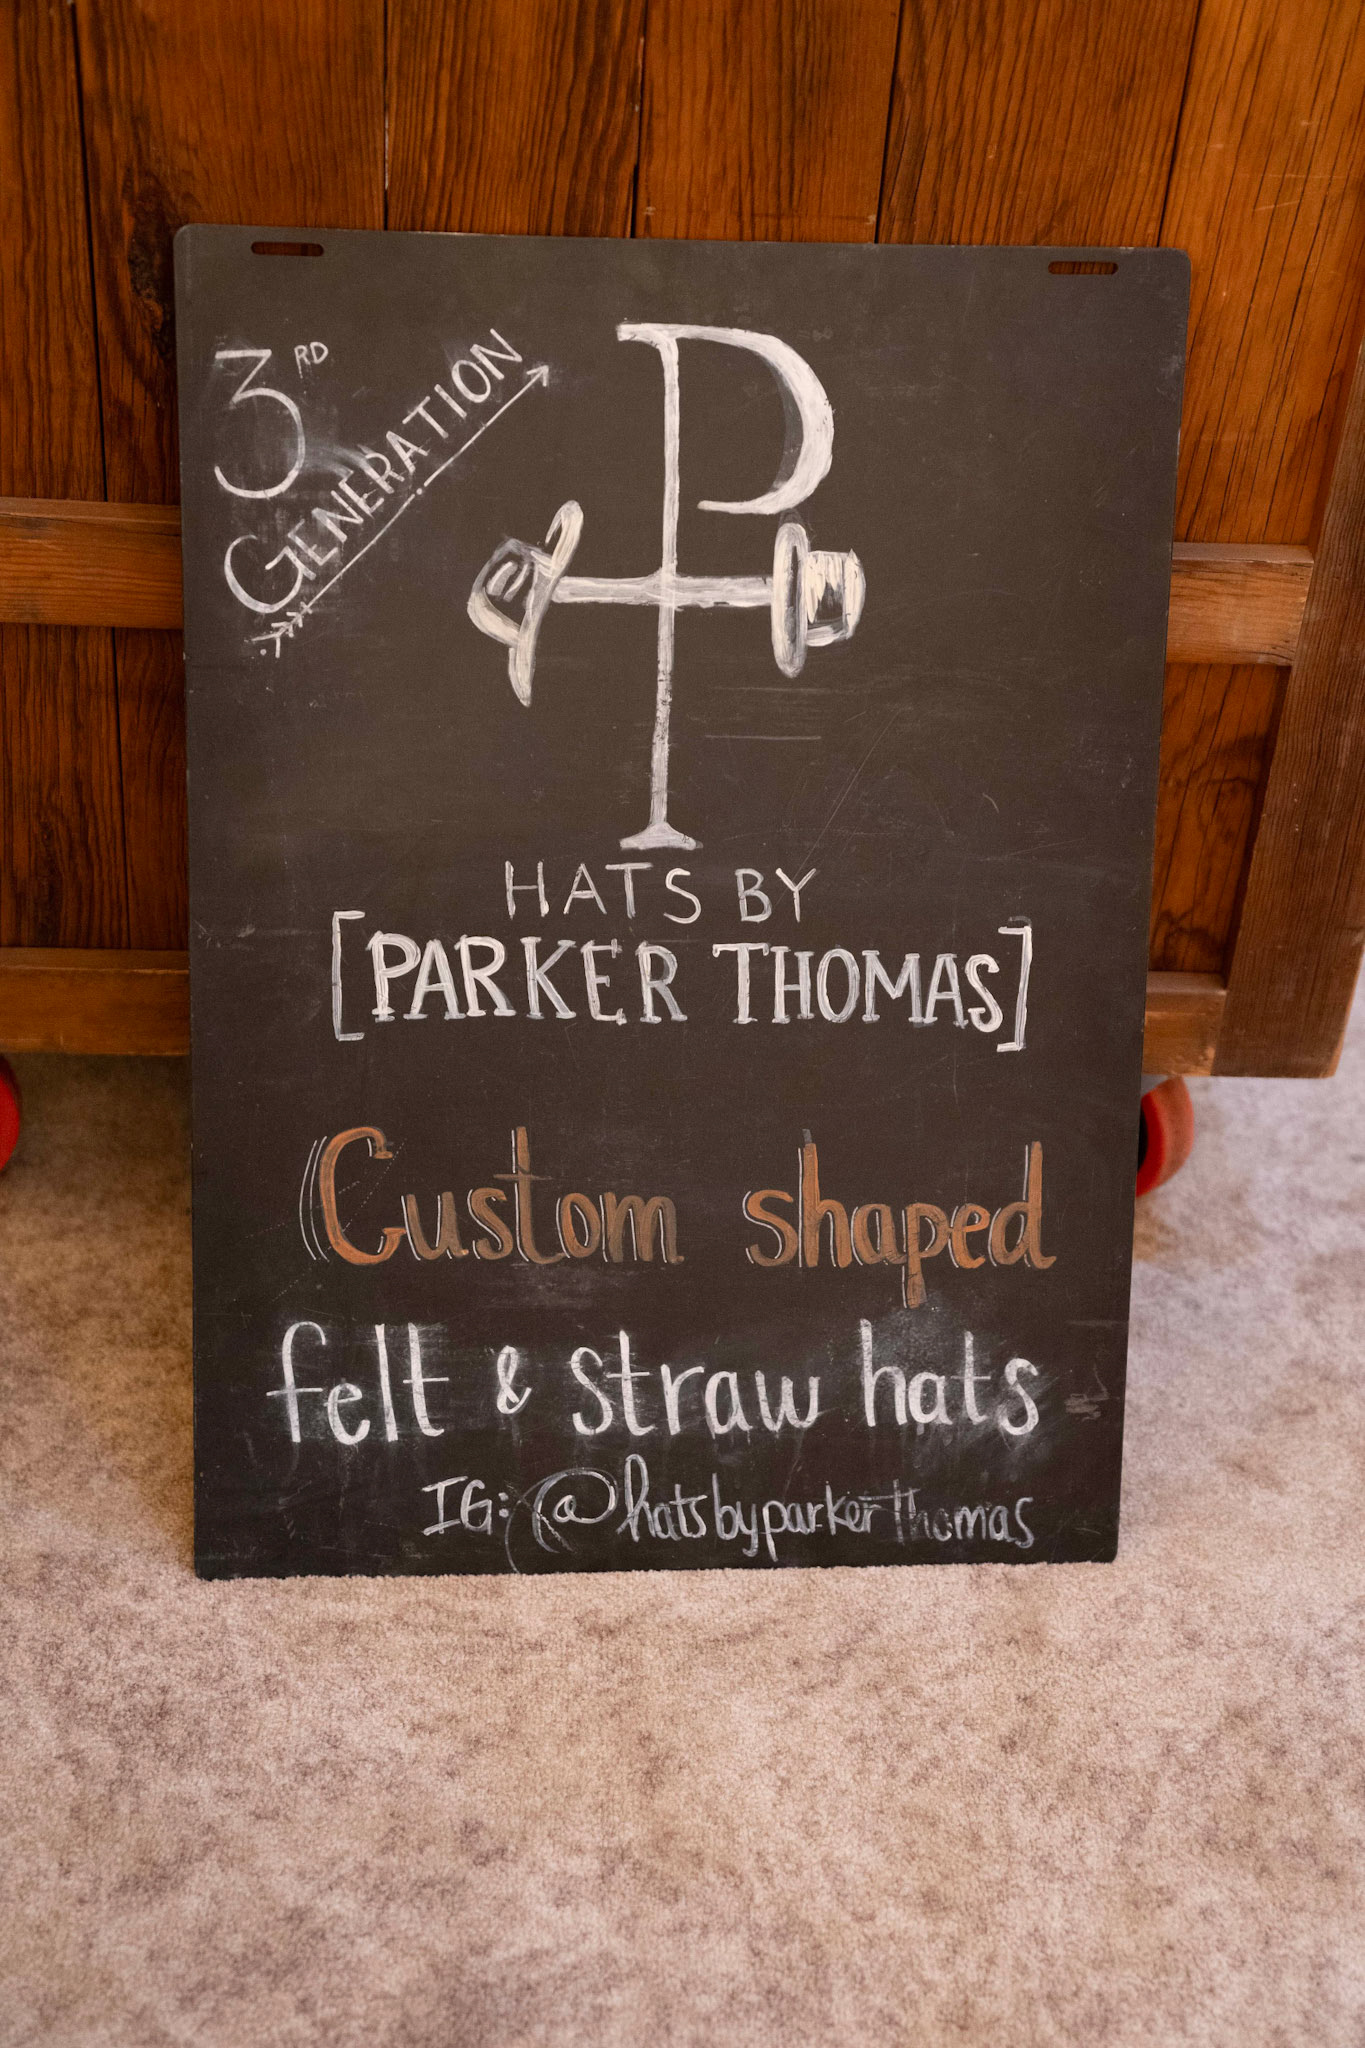 3RD
GENERATION
P
HATS BY
[PARKER THOMAS]
Custom shaped
felt & straw hats
IG: @hatsbyparkerThomas